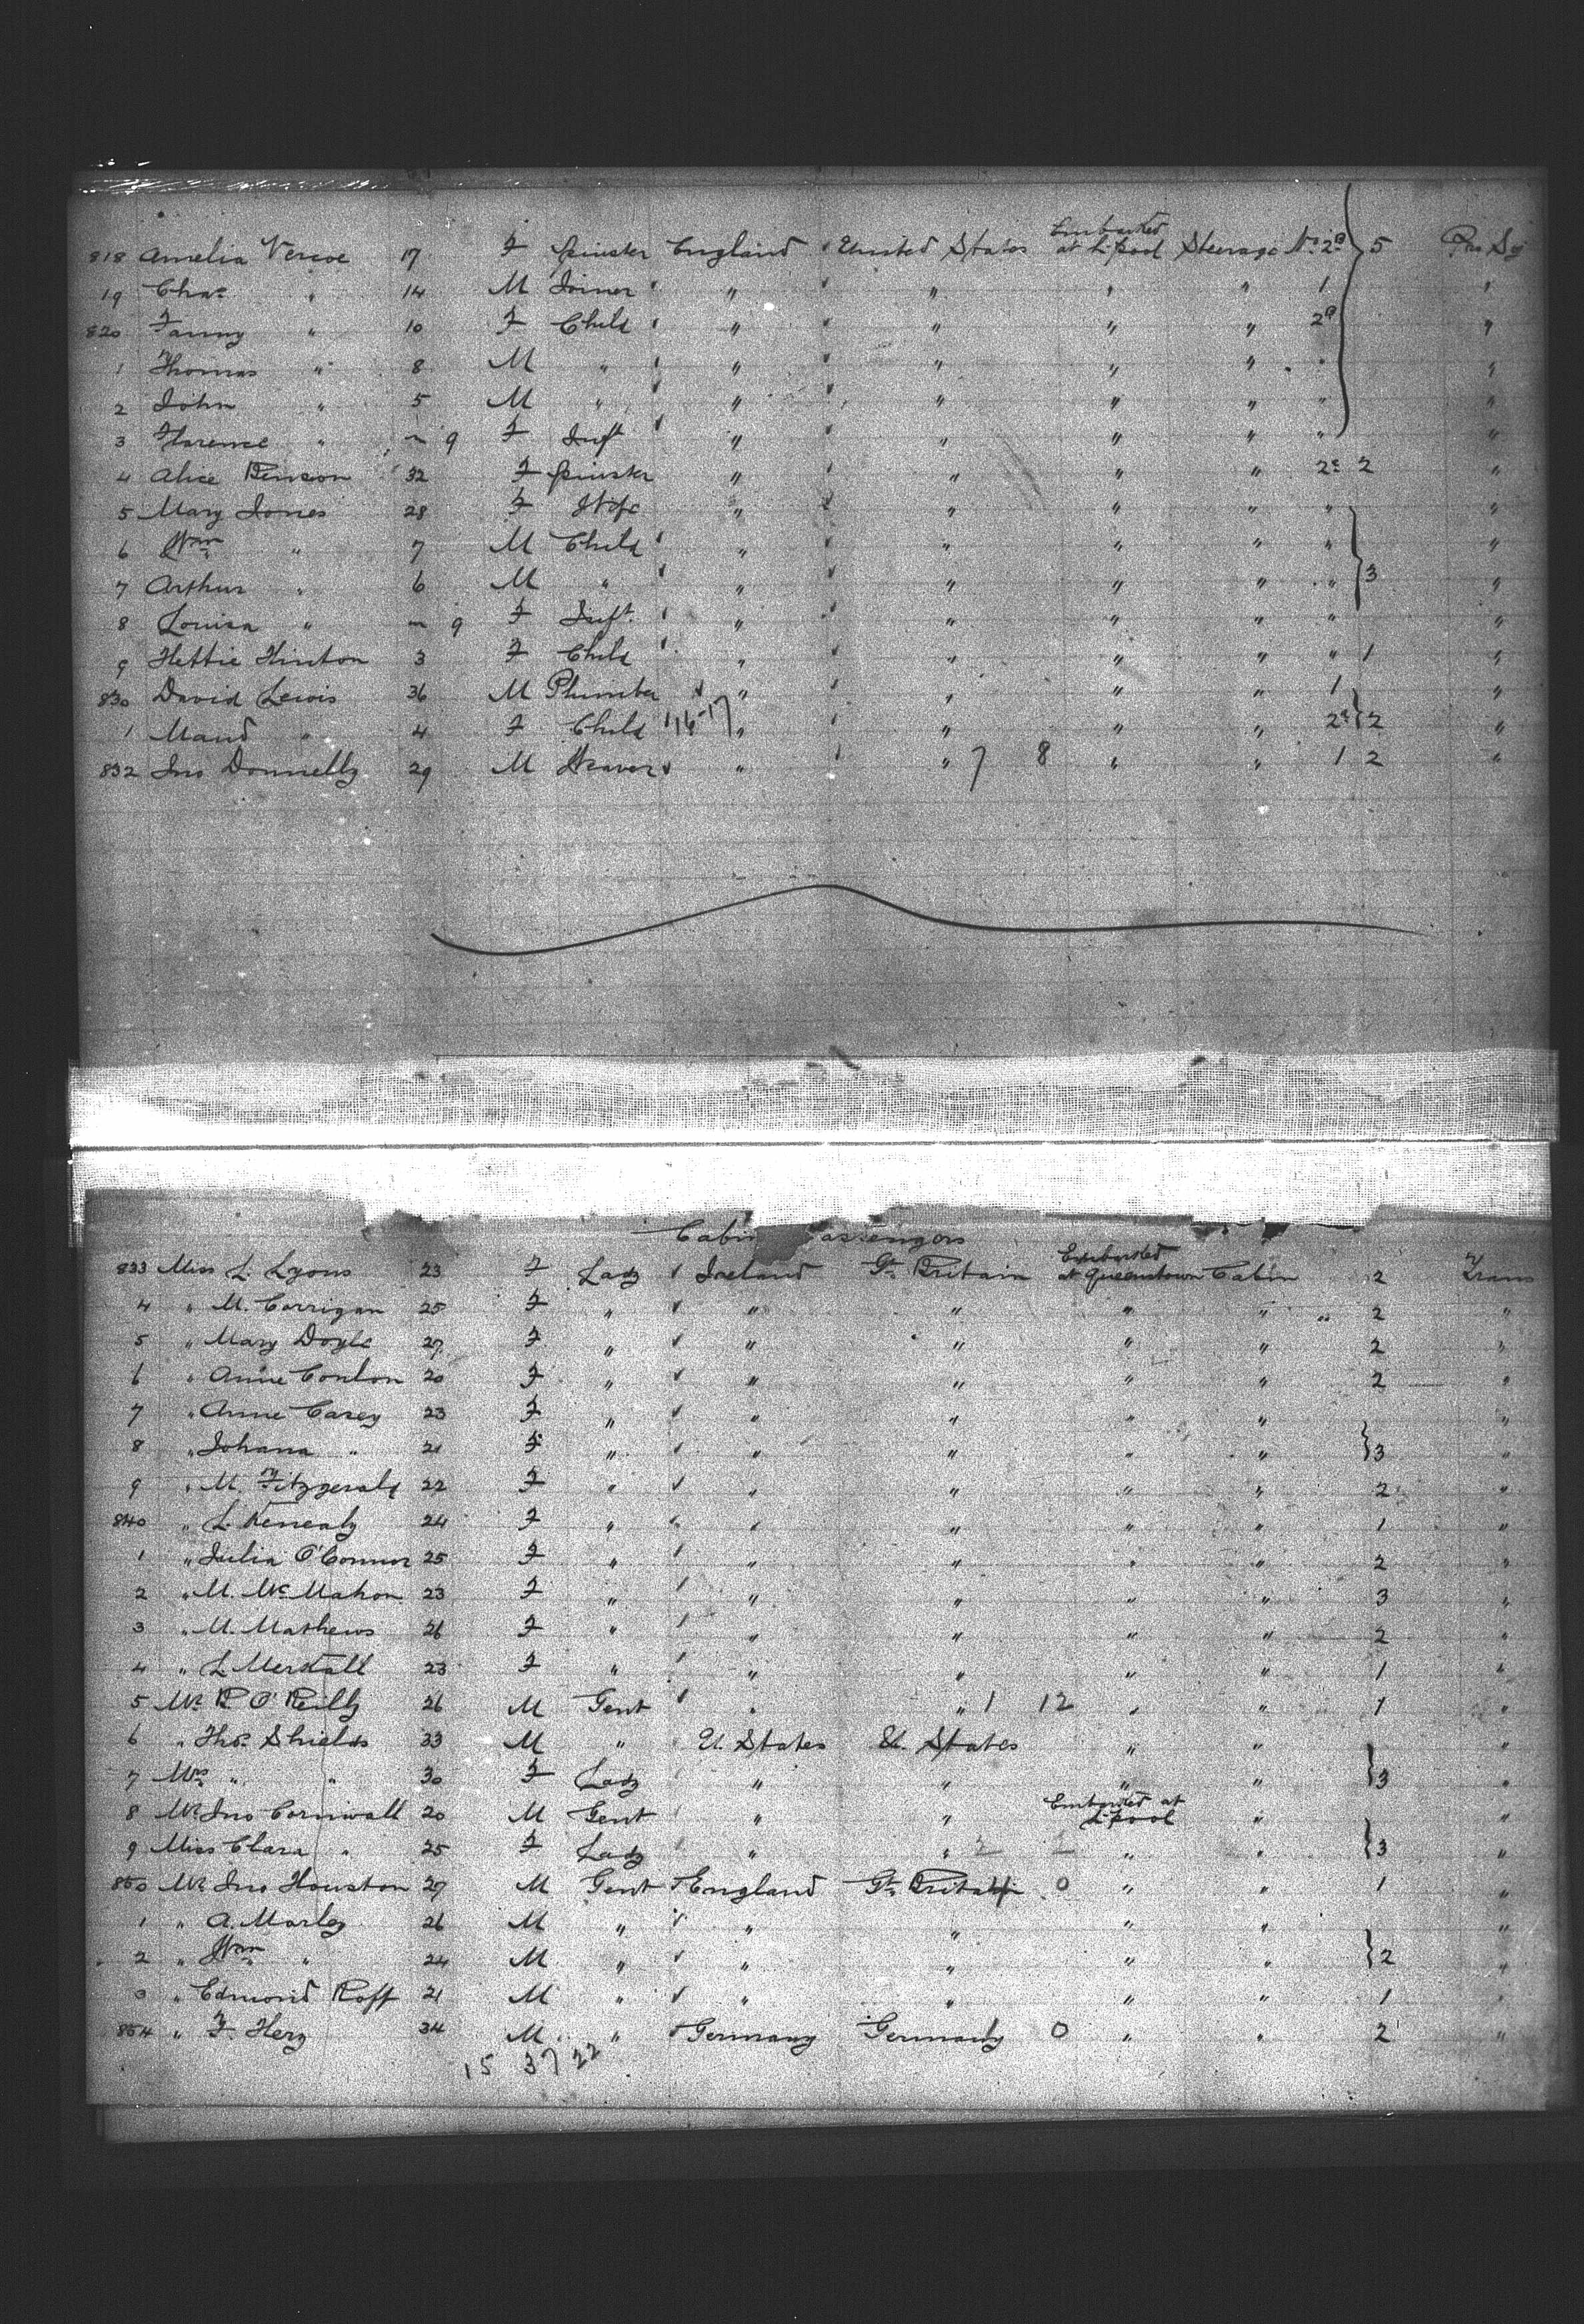 818 Amelia 17 F Spinster England United States Embarked at L'pool Steerage No. 2a 5
19 Chas " 14 M Joiner " " " " 1 "
820 Fanny " 10 F Child " " " " 2a "
1 Thomas " 8 M " " " " " " "
2 John " 5 M " " " " " " "
3 Florence " 9 F Inft " " " " " "
4 Alice 32 F Spinster " " " " 2a 2 "
5 Mary Jones 28 F Wife " " " " " "
6 Wm " 7 M Child " " " " " "
7 Arthur " 6 M " " " " " " 3 "
8 Louisa " 9 F Inft. " " " " " "
9 Hettie Hinton 3 F Child " " " " " 1 "
830 David Lewis 36 M Plumber " " " " 1 "
1 Maud " 4 F Child 16-17 " " " " 2a 2 "
832 Jno Donnelly 29 M Weaver " " 7 8 " " 1 2 "
Cabin Passengers
833 Miss L. Lyons 23 F Lady Ireland Gt. Britain Embarked at Queenstown Cabin 2 Trans
4 " M. Corrigan 25 F " " " " " 2 "
5 " Mary Doyle 27 F " " " " " 2 "
6 " Annie Conlon 20 F " " " " " 2 "
7 " Anne Carey 23 F " " " " " "
8 " Johana " 21 F " " " " " 3 "
9 " M. Fitzgerald 22 F " " " " " 2 "
840 " L. Kenealy 24 F " " " " " 1 "
1 " Julia O'Connor 25 F " " " " " 2 "
2 " M. McMahon 23 F " " " " " 3 "
3 " M. Mathews 26 F " " " " " 2 "
4 " L. 23 F " " " " " 1 "
5 Mr. P O'Reilly 26 M Gent " " 1 12 " " 1 "
6 " Thos. Shields 33 M " U. States U. States " " "
7 Mrs " " 30 F Lady " " " " 3 "
8 Mr. Jno Cornwall 20 M Gent " " Embarked at L'pool "
9 Miss Clara " 25 F Lady " " 2 " " 3 "
850 Mr. Jno Houston 29 M Gent England Gt. Britain 0 " " 1 "
1 " A. Marley 26 M " " " " " "
2 " Wm " 24 M " " " " " 2 "
3 " Edmond Roff 21 M " " " " " 1 "
854 " F. Herz 34 M " Germany Germany 0 " " 2 "
15 37 22